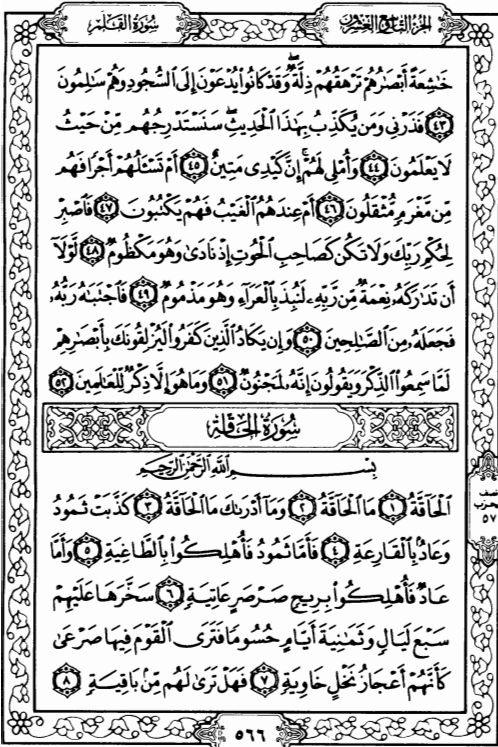 سورة القلم
الجزء التاسع والعشرون
خَٰشِعَةً أَبۡصَٰرُهُمۡ تَرۡهَقُهُمۡ ذِلَّةٞۖ وَقَدۡ كَانُواْ يُدۡعَوۡنَ إِلَى ٱلسُّجُودِ وَهُمۡ سَٰلِمُونَ
٤٣ فَذَرۡنِي وَمَن يُكَذِّبُ بِهَٰذَا ٱلۡحَدِيثِۖ سَنَسۡتَدۡرِجُهُم مِّنۡ حَيۡثُ
لَا يَعۡلَمُونَ ٤٤ وَأُمۡلِي لَهُمۡۚ إِنَّ كَيۡدِي مَتِينٌ ٤٥ أَمۡ تَسۡـَٔلُهُمۡ أَجۡرٗا فَهُم
مِّن مَّغۡرَمٖ مُّثۡقَلُونَ ٤٦ أَمۡ عِندَهُمُ ٱلۡغَيۡبُ فَهُمۡ يَكۡتُبُونَ ٤٧ فَٱصۡبِرۡ
لِحُكۡمِ رَبِّكَ وَلَا تَكُن كَصَاحِبِ ٱلۡحُوتِ إِذۡ نَادَىٰ وَهُوَ مَكۡظُومٞ ٤٨ لَّوۡلَآ
أَن تَدَٰرَكَهُۥ نِعۡمَةٞ مِّن رَّبِّهِۦ لَنُبِذَ بِٱلۡعَرَآءِ وَهُوَ مَذۡمُومٞ ٤٩ فَٱجۡتَبَٰهُ رَبُّهُۥ
فَجَعَلَهُۥ مِنَ ٱلصَّٰلِحِينَ ٥٠ وَإِن يَكَادُ ٱلَّذِينَ كَفَرُواْ لَيُزۡلِقُونَكَ بِأَبۡصَٰرِهِمۡ
لَمَّا سَمِعُواْ ٱلذِّكۡرَ وَيَقُولُونَ إِنَّهُۥ لَمَجۡنُونٞ ٥١ وَمَا هُوَ إِلَّا ذِكۡرٞ لِّلۡعَٰلَمِينَ ٥٢
سورة الحاقة
بِسۡمِ ٱللَّهِ ٱلرَّحۡمَٰنِ ٱلرَّحِيمِ
ٱلۡحَآقَّةُ ١ مَا ٱلۡحَآقَّةُ ٢ وَمَآ أَدۡرَىٰكَ مَا ٱلۡحَآقَّةُ ٣ كَذَّبَتۡ ثَمُودُ
وَعَادُۢ بِٱلۡقَارِعَةِ ٤ فَأَمَّا ثَمُودُ فَأُهۡلِكُواْ بِٱلطَّاغِيَةِ ٥ وَأَمَّا
عَادٞ فَأُهۡلِكُواْ بِرِيحٖ صَرۡصَرٍ عَاتِيَةٖ ٦ سَخَّرَهَا عَلَيۡهِمۡ
سَبۡعَ لَيَالٖ وَثَمَٰنِيَةَ أَيَّامٍ حُسُومٗا فَتَرَى ٱلۡقَوۡمَ فِيهَا صَرۡعَىٰ
كَأَنَّهُمۡ أَعۡجَازُ نَخۡلٍ خَاوِيَةٖ ٧ فَهَلۡ تَرَىٰ لَهُم مِّنۢ بَاقِيَةٖ ٨
نصف
الحزب
٥٧
٥٦٦